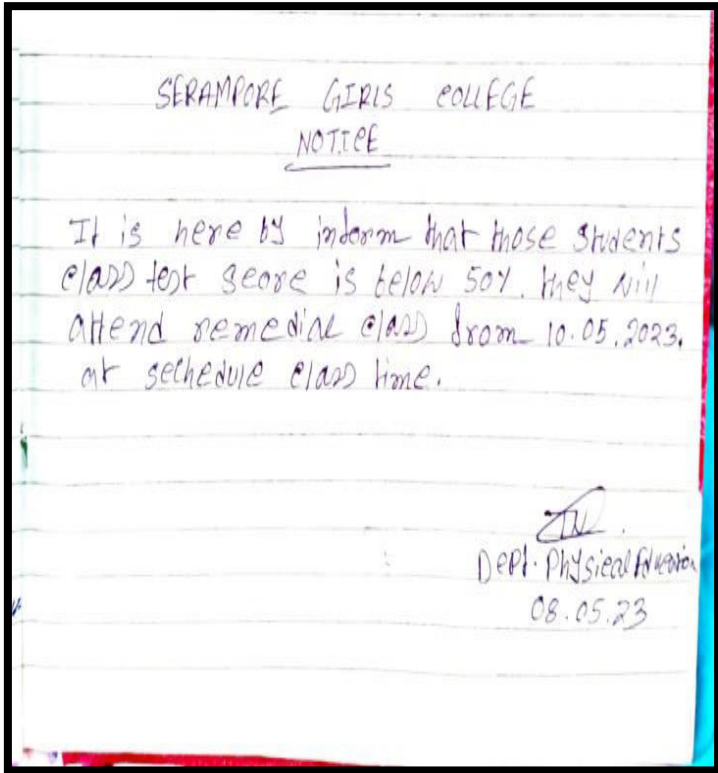 SERAMPORE GIRLS COLLEGE
NOTICE
It is here by inform that those students
class test score is below 50%. they will
attend remedial class from 10.05.2023.
at sechedule class time.
TN
Dept. Physical Education
08.05.23